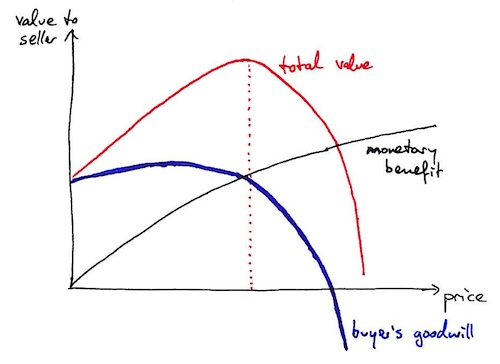 value to
seller
total value
monetary
benefit
price
buyer's goodwill